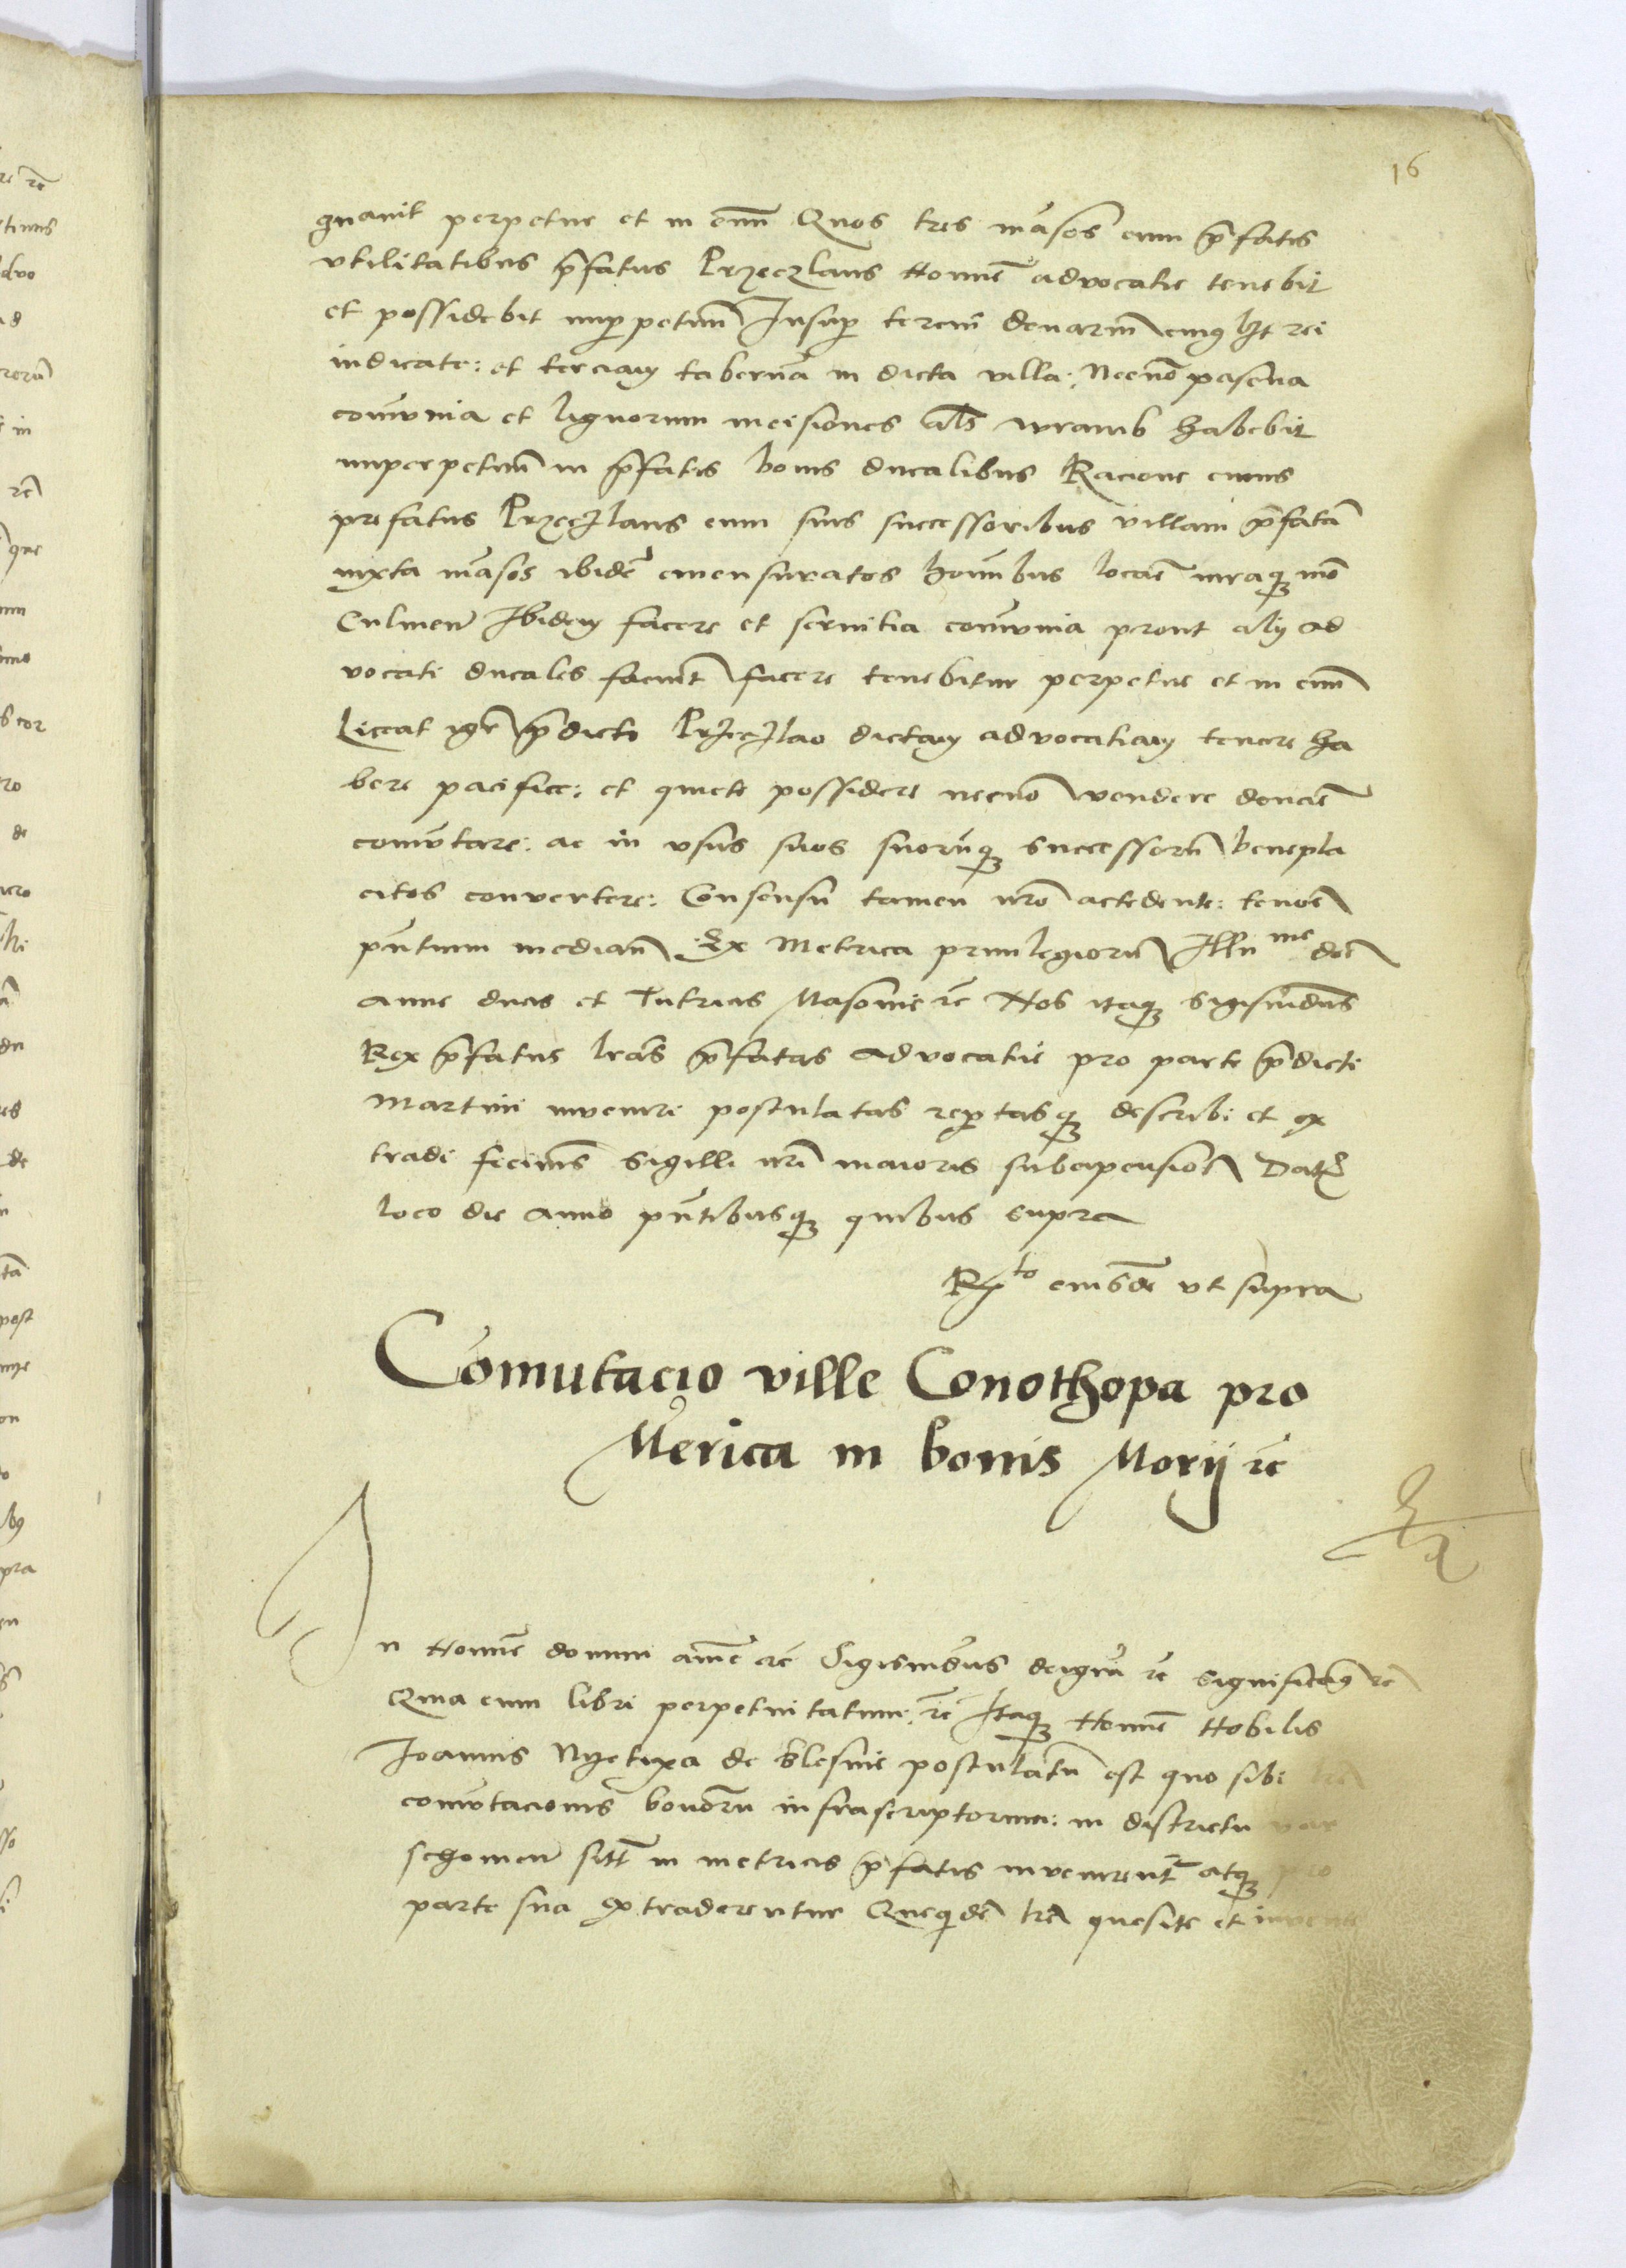 16
gnavit perpetue et in evum Quos tres mansos cum p̄fatis
utilitatibus p̄fatus Przeczlaus nomine advocatie tenebit
et possidebit imperpetuum Insuper tercium denarium cuiuslibet rei
iudicate: et terciam tabernā in dicta villa: Necnō pascua
cōmunia et lignorum incisiones als wramb habebit
imperpetuum in p̄fatis bonis ducalibus Racione cuius
prefatus Przeczlaus cum suis successoribus villam p̄fatā
iuxta māsos ibidē emensuratos hoīnibus locare iuraque
Culmen Ibidem facere et servitia cōmunia prout alij ad
vocati ducales faciunt facere tenebitur perpetue et in evum
Liceat igr p̄dicto Przeczlao dictam advocatiam tenere ha
bere pacifice: et quiete possidere necnō vendere donare
cōmutare: ac in usus suos suorūque successorū benepla
citos convertere: Consensu tamen nr̄o accedente: tenore
pn̄tium median̄ Ex Metrica privilegiorū Illu me dne
Anne ducis et Tutricis Masovie rc̄ Nos itaque Sigismūdus
Rex p̄fatus lrās p̄fatas advocatie pro parte p̄dicti
Martini inveniri postulatas reptasque describi et ex
tradi fecimus sigilli nr̄i maioris subappensione Datȝ
loco die anno pn̄tibusque quibus supra
R to eiusdē ut supra
Cōmutacio ville Conothopa pro
Merica in bonis Morij rc̄
In nomīe domini amē rc̄ Sigismūdus dei grā rc̄ significamus rc̄
Quia cum libri perpetuitatum: rc̄ Itaque nomīe Nobilis
Joannis Nyetixa de Blesnie postulatū est quo sibi lrē
cōmutacionis bonorū infrascriptorum: in districtu var
schovien sitt in metricis p̄fatis invenirent atque pro
parte sua extraderentur Quequidē lrē quesite et invente